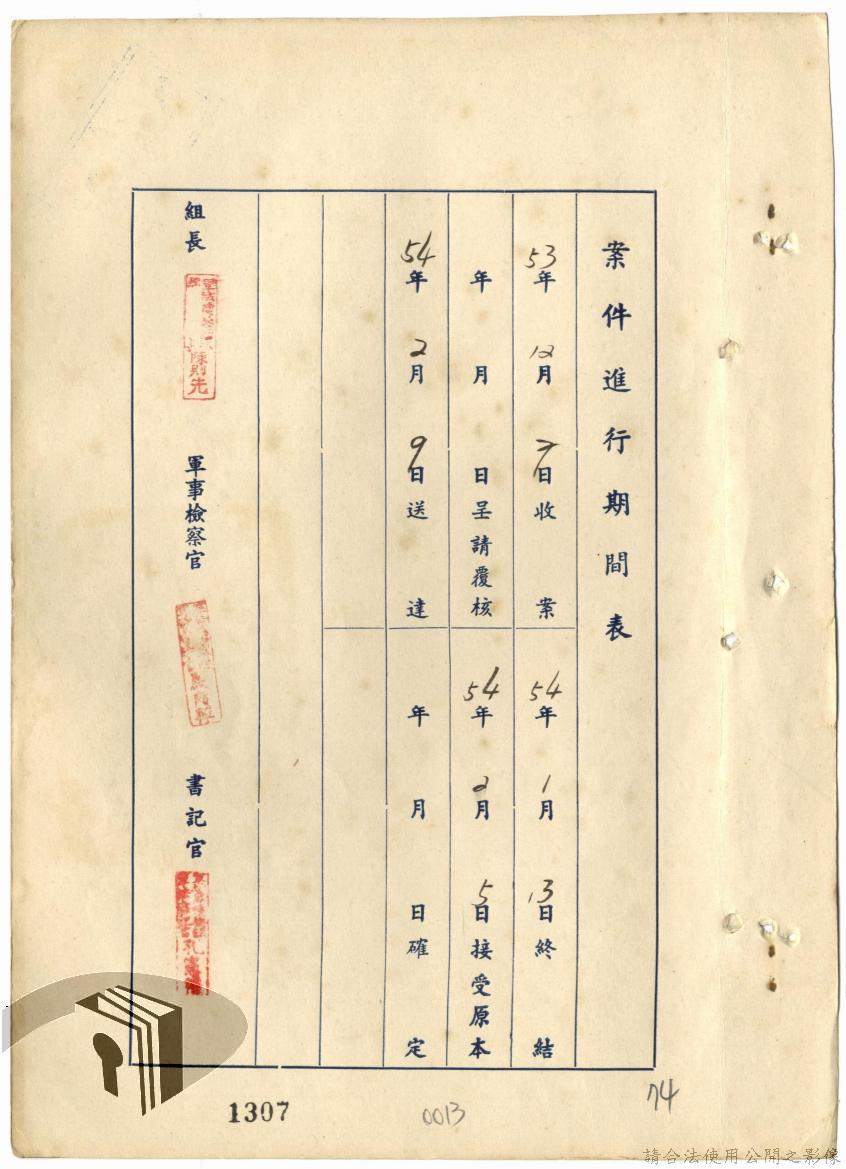 案件進行期間表
53年12月7日收案
54年1月13日終結
年月日呈請覆核
54年2月5日接受原本
54年2月9日送達
年月日確定
組長
陳則先
軍事檢察官
書記官
1307
0013
74
請合法使用公開之影像